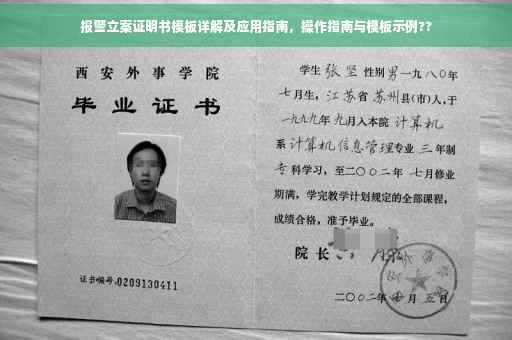 报警立案证明书模板详解及应用指南，操作指南与模板示例??
西安外事学院
毕业证书
证书编号:0209130411
学生 张坚 性别男一九八〇年
七月生，江苏省苏州县(市)人，于
一九九九年九月入本院 计算机
系计算机信息管理专业 三年制
专科学习，至二〇〇二年 七月修业
期满，学完教学计划规定的全部课程，
成绩合格，准予毕业。
院长
二〇〇二年 七月 五日